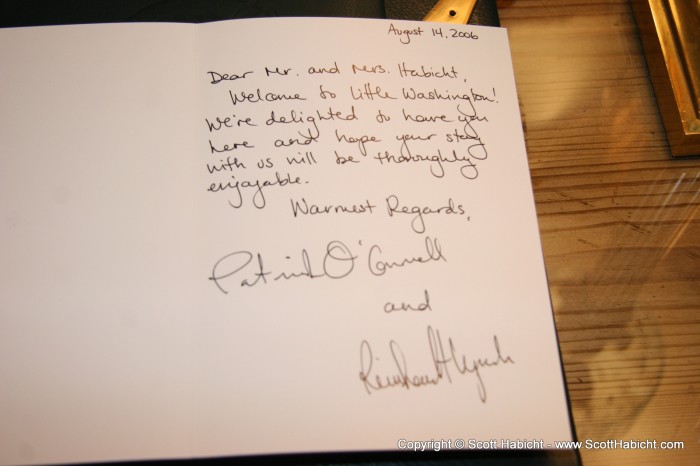 August 14, 2006
Dear Mr. and Mrs. Habicht,
Welcome to Little Washington!
We're delighted to have you
here and hope your stay
with us will be thoroughly
enjoyable.
Warmest Regards,
Patrick O'Connell
and
Reinhardt Lynch
Copyright © Scott Habicht - www.ScottHabicht.com